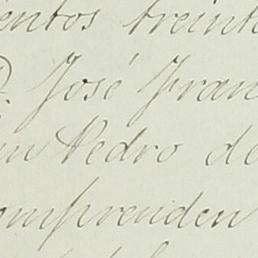 entos treint
José Fran
n Pedro de
omprenden